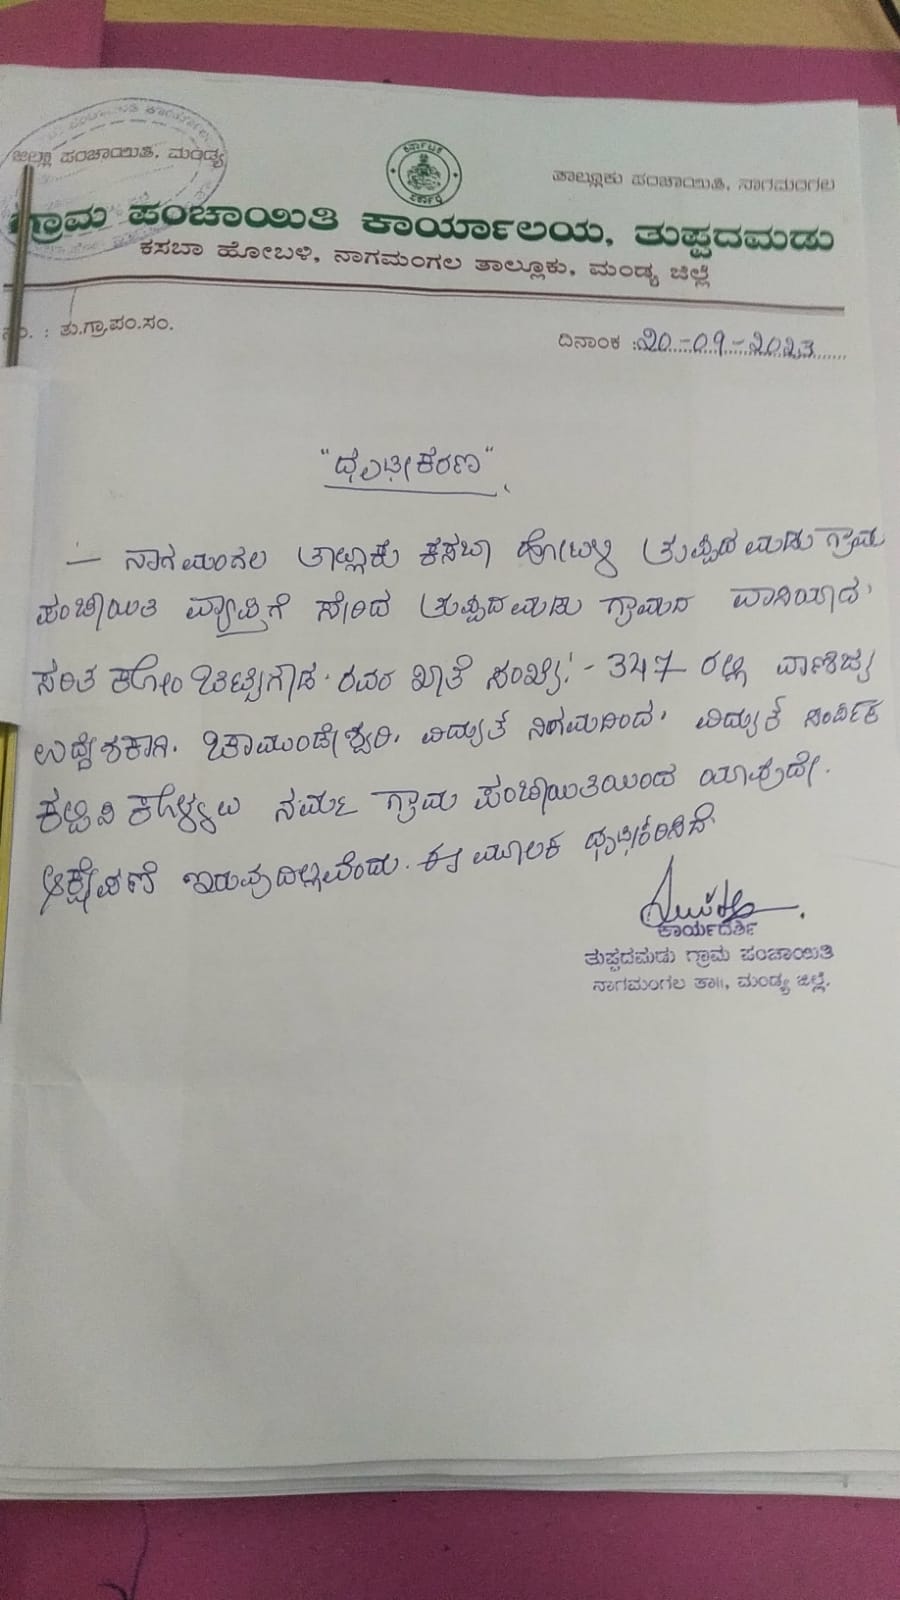 ಜಿಲ್ಲಾ ಪಂಚಾಯಿತಿ, ಮಂಡ್ಯ
ತಾಲ್ಲೂಕು ಪಂಚಾಯಿತಿ, ನಾಗಮಂಗಲ
ಗ್ರಾಮ ಪಂಚಾಯಿತಿ ಕಾರ್ಯಾಲಯ, ತುಪ್ಪದಮಡು
ಕಸಬಾ ಹೋಬಳಿ, ನಾಗಮಂಗಲ ತಾಲ್ಲೂಕು, ಮಂಡ್ಯ ಜಿಲ್ಲೆ
ಸಂ. : ತು.ಗ್ರಾ.ಪಂ.ಸಂ.
ದಿನಾಂಕ :20-09-2023
"ಧೃಢೀಕರಣ"
— ನಾಗಮಂಗಲ ತಾಲ್ಲೂಕು ಕಸಬಾ ಹೋಬಳಿ ತುಪ್ಪದಮಡು ಗ್ರಾಮ
ಪಂಚಾಯಿತಿ ವ್ಯಾಪ್ತಿಗೆ ಸೇರಿದ ತುಪ್ಪದಮಡು ಗ್ರಾಮದ ವಾಸಿಯಾದ
ಕೋಂ ಚಿಟ್ಟಿಗೌಡ ರವರ ಖಾತೆ ಸಂಖ್ಯೆ:- 347 ರಲ್ಲಿ ವಾಣಿಜ್ಯ
ಉದ್ದೇಶಕಾಗಿ. ಚಾಮುಂಡೇಶ್ವರಿ. ವಿದ್ಯುತ್ ನಿಗಮದಿಂದ ವಿದ್ಯುತ್ ಸಂಪರ್ಕ
ಕಲ್ಪಿಸಿ ಕೊಳ್ಳಲು ನಮ್ಮ ಗ್ರಾಮ ಪಂಚಾಯಿತಿಯಿಂದ ಯಾವುದೇ.
ಆಕ್ಷೇಪಣೆ ಇರುವುದಿಲ್ಲವೆಂದು. ಈ ಮೂಲಕ ಧೃಢೀಕರಿಸಿದೆ
ಕಾರ್ಯದರ್ಶಿ
ತುಪ್ಪದಮಡು ಗ್ರಾಮ ಪಂಚಾಯಿತಿ
ನಾಗಮಂಗಲ ತಾ||, ಮಂಡ್ಯ ಜಿಲ್ಲೆ.